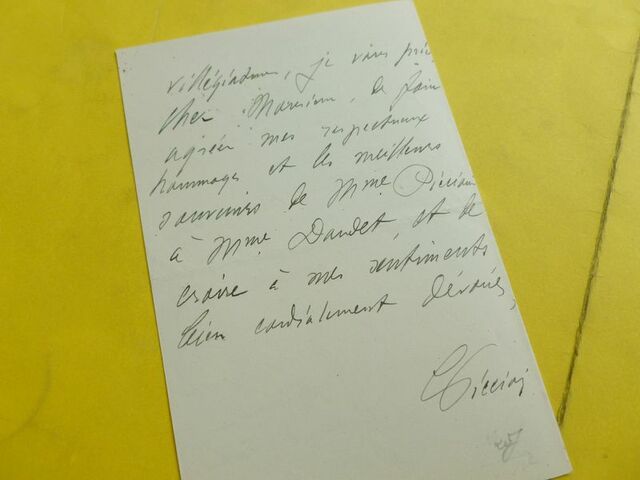 villégiature, je vous prie,
cher Monsieur, de faire
agréer mes respectueux
hommages et les meilleurs
souvenirs de Mme Piccioni
à Mme Daudet, et de
croire à mes sentiments
bien cordialement dévoués,
Piccioni